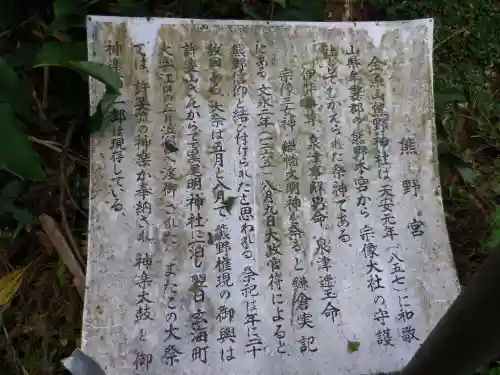 熊野宮
熊野神社は天安元年(八五七)に和歌
山県牟婁郡の熊野本宮から宗像大社の守護
社としてむかえられた祭神である。
伊弉冉尊、泉津事解男命、泉津速玉命
宗像三女神、織幡大明神を祭ると鎌倉実記
にある。文永二年(一二六五)八月九日大政官符によると
熊野信仰と結び付けられたと思われる。祭祀は年に二十
数回、大祭は五月と八月で、熊野権現の御輿は
許斐山からでて明神社に一泊し翌日玄海町
江口の五月浜へ渡御された。またこの大祭
では、許斐流の神楽が奉納され神楽太鼓と御
神 一部は現存している。